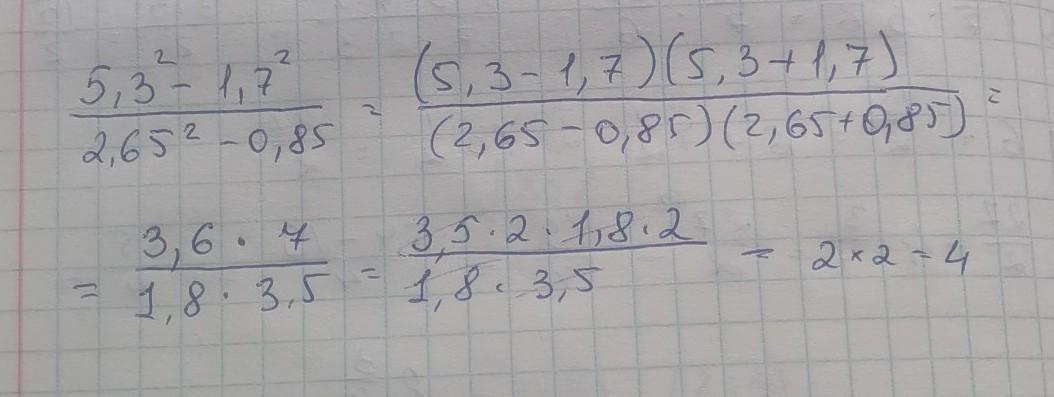 (5,3² - 1,7²) / (2,65² - 0,85) = ((5,3 - 1,7)(5,3 + 1,7)) / ((2,65 - 0,85)(2,65 + 0,85)) =
= (3,6 · 7) / (1,8 · 3,5) = (3,5 · 2 · 1,8 · 2) / (1,8 · 3,5) = 2 × 2 = 4